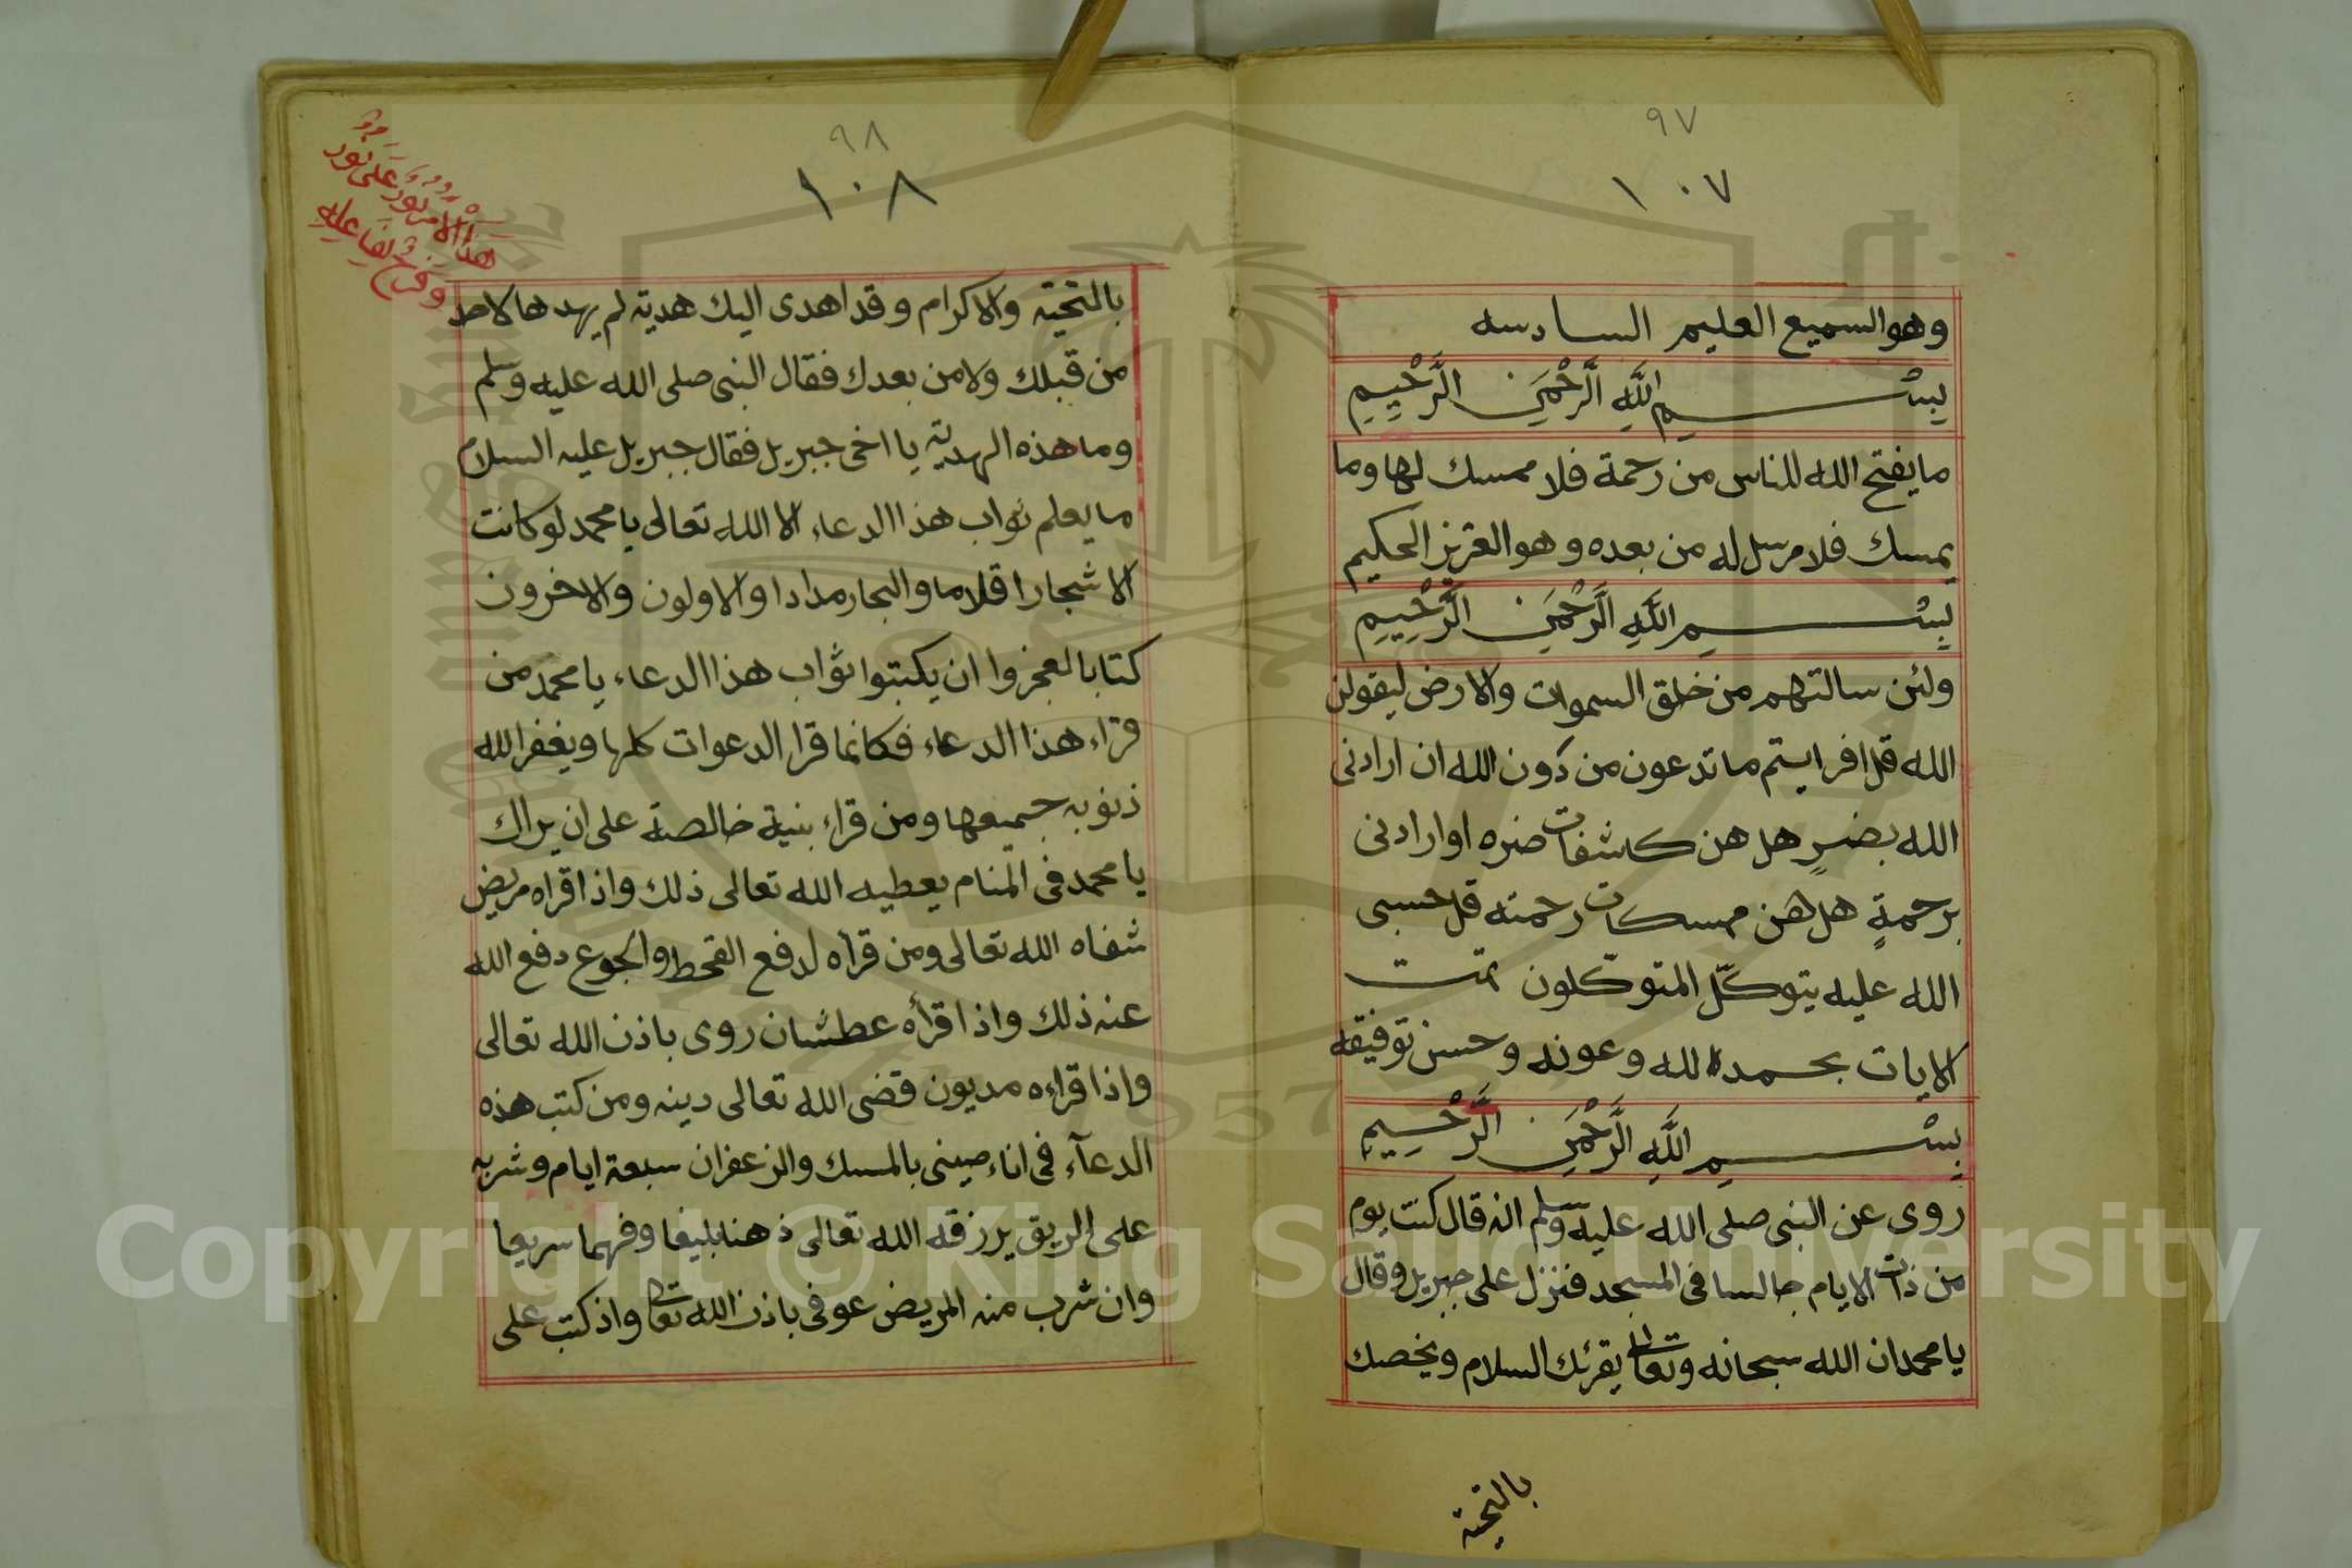 ٩٧
١٠٧
وهو السميع العليم السادسه
بِسْــــمِ اللَّهِ الرَّحْمَنِ الرَّحِيمِ
ما يفتح الله للناس من رحمة فلا ممسك لها وما
يمسك فلا مرسل له من بعده وهو العزيز الحكيم
بِسْــــمِ اللَّهِ الرَّحْمَنِ الرَّحِيمِ
ولئن سالتهم من خلق السموات والارض ليقولن
الله قل افرايتم ما تدعون من دون الله ان ارادنى
الله بضرٍ هل هن كاشفات ضره او ارادنى
برحمةٍ هل هن ممسكات رحمته قل حسبى
الله عليه يتوكّل المتوكّلون تمت
الايات بحمد الله وعونه وحسن توفيقه
بِسْــــمِ اللَّهِ الرَّحْمَنِ الرَّحِيمِ
روى عن النبى صلى الله عليه وسلم انه قال كنت يوم
من ذات الايام جالسا فى المسجد فنزل على جبريل وقال
يا محمد ان الله سبحانه وتعالى يقرئك السلام ويخصك
بالتحية
٩٨
١٠٨
هذا الامر نُورٌ عَلَى نُورٍ
بالتحية والاكرام وقد اهدى اليك هدية لم يهدها لاحد
من قبلك ولا من بعدك فقال النبى صلى الله عليه وسلم
وما هذه الهدية يا اخى جبريل فقال جبريل عليه السلام
ما يعلم ثواب هذا الدعاء الا الله تعالى يا محمد لو كانت
الاشجار اقلاما والبحار مدادا والاولون والاخرون
كتابا لعجزوا ان يكتبوا ثواب هذا الدعاء يا محمد من
قراء هذا الدعاء فكانما قرا الدعوات كلها ويغفر الله
ذنوبه جميعها ومن قراء بنية خالصة على ان يراك
يا محمد فى المنام يعطيه الله تعالى ذلك واذا قراه مريض
شفاه الله تعالى ومن قرأه لدفع القحط والجوع دفع الله
عنه ذلك واذا قرأه عطشان روى باذن الله تعالى
واذا قراءه مديون قضى الله تعالى دينه ومن كتب هذه
الدعآء فى اناء صينى بالمسك والزعفران سبعة ايام وشربه
على الريق يرزقه الله تعالى ذهنا بليغا وفهما سريعا
وان شرب منه المريض عوفى باذن الله تعالى واذ كتب على
Copyright © King Saud University
1957